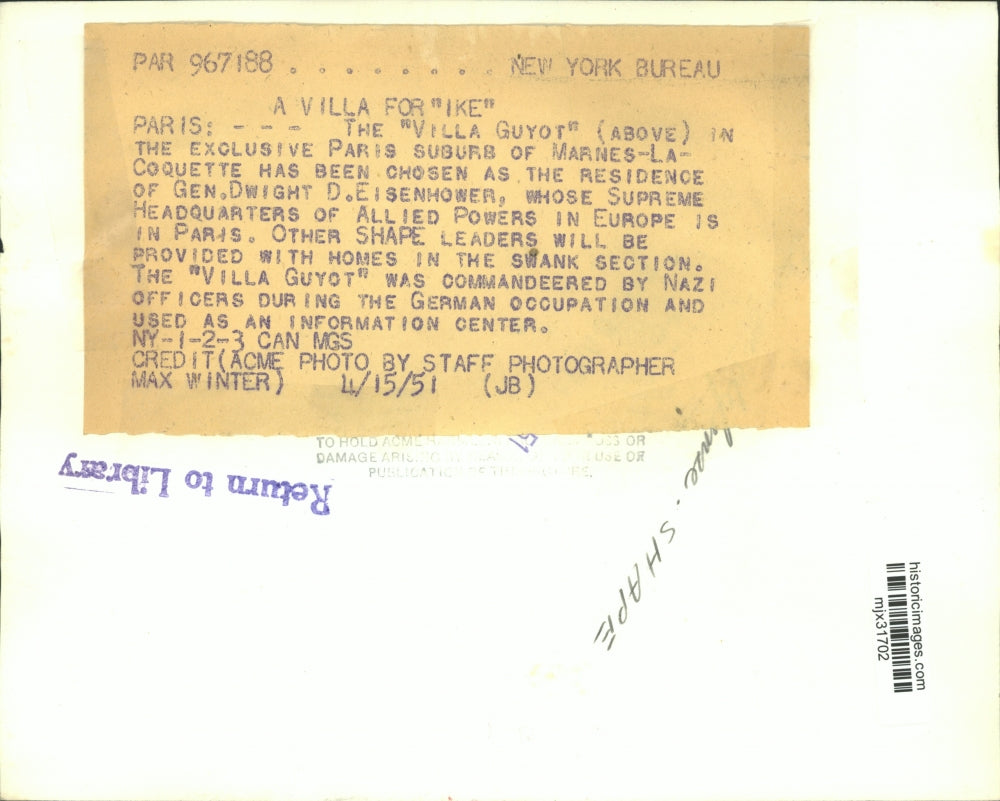 PAR 967188 . . . . . . . . . NEW YORK BUREAU
A VILLA FOR "IKE"
PARIS: - - - THE "VILLA GUYOT" (ABOVE) IN
THE EXCLUSIVE PARIS SUBURB OF MARNES-LA-
COQUETTE HAS BEEN CHOSEN AS THE RESIDENCE
OF GEN.DWIGHT D.EISENHOWER, WHOSE SUPREME
HEADQUARTERS OF ALLIED POWERS IN EUROPE IS
IN PARIS. OTHER SHAPE LEADERS WILL BE
PROVIDED WITH HOMES IN THE SWANK SECTION.
THE "VILLA GUYOT" WAS COMMANDEERED BY NAZI
OFFICERS DURING THE GERMAN OCCUPATION AND
USED AS AN INFORMATION CENTER.
NY-1-2-3 CAN MGS
CREDIT(ACME PHOTO BY STAFF PHOTOGRAPHER
MAX WINTER) 4/15/51 (JB)
TO HOLD ACME OR
DAMAGE USE OR
Return to Library
SHAPE
historicimages.com
mjx31702